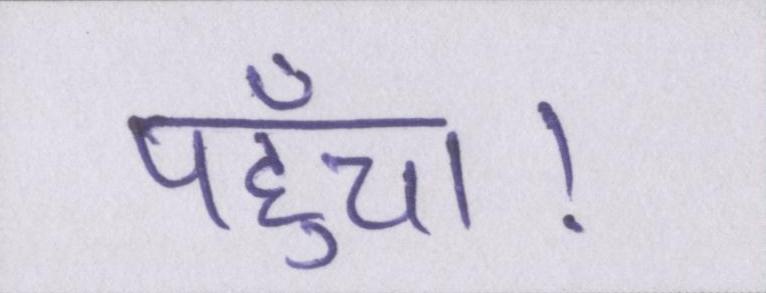 पहुँचा!